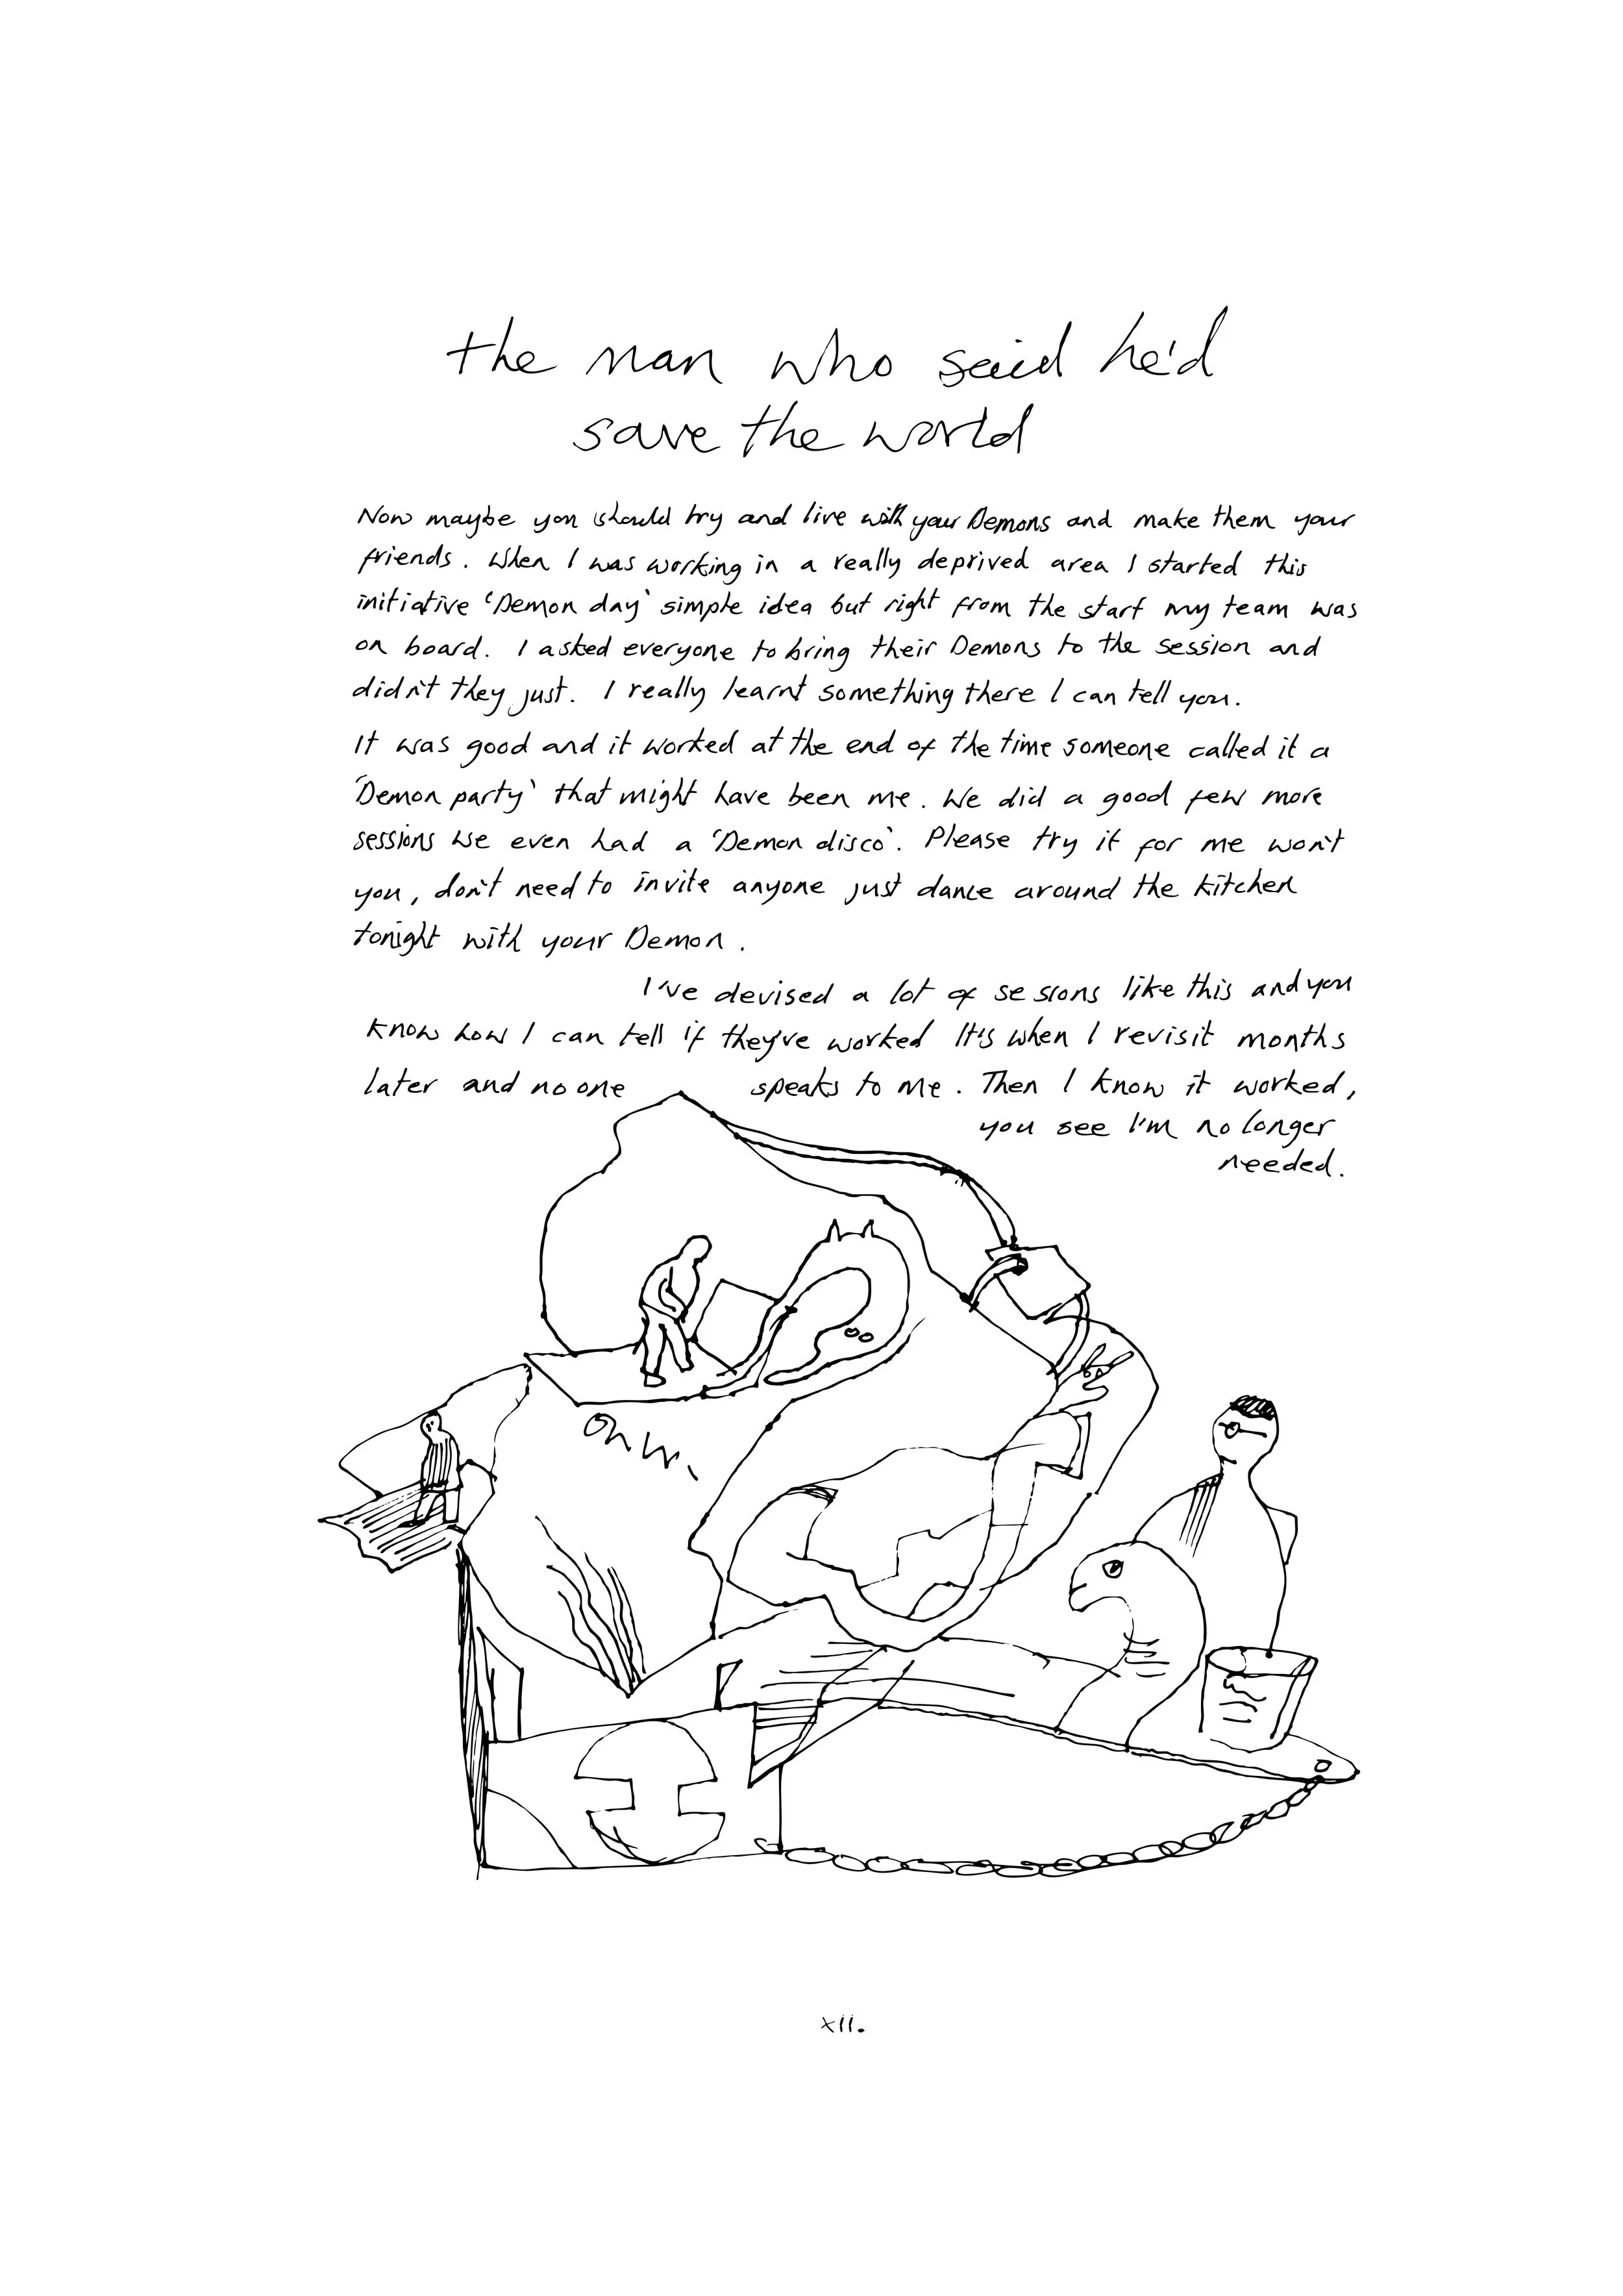 the man who said he'd
save the world
Now maybe you should try and live with your Demons and make them your
friends. When I was working in a really deprived area I started this
initiative 'Demon day' simple idea but right from the start my team was
on board. I asked everyone to bring their Demons to the session and
didn't they just. I really learnt something there I can tell you.
It was good and it worked at the end of the time someone called it a
'Demon party' that might have been me. We did a good few more
sessions we even had a 'Demon disco'. Please try it for me won't
you, don't need to invite anyone just dance around the kitchen
tonight with your Demon.
I've devised a lot of sessions like this and you
know how I can tell if they've worked It's when I revisit months
later and no one speaks to me. Then I know it worked,
you see I'm no longer
needed.
xii.